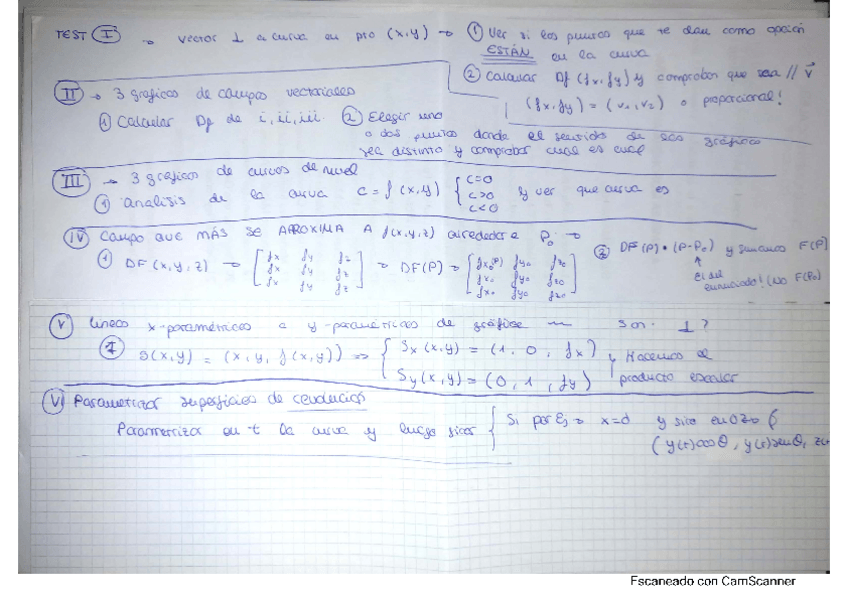 TEST I → vector ⊥ a curva en pto (x,y) → ① Ver si los puntos que te dan como opción
ESTÁN en la curva
② Calcular Df (fx, fy) y comprobar que sea // v⃗
(fx, fy) = (v₁, v₂) o proporcional!
II → 3 gráficos de campos vectoriales
① Calcular Df de i, ii, iii. ② Elegir uno
o dos puntos donde el sentido de los gráficos
sea distinto y comprobar cual es cual
III → 3 gráficos de curvas de nivel
① analisis de la curva c = f(x,y) { c=0 c>0 c<0 y ver que curva es
IV Campo que MÁS SE APROXIMA A f(x,y,z) alrededor P₀ →
① DF(x,y,z) → [fx fy fz
fx fy fz
fx fy fz] → DF(P) =
② DF(P) • (P-P₀) y sumamos F(P)
El del
enunciado! (No F(P₀)
V Lineas x-paramétricas a y-paramétricas de gráfica son ⊥?
① S(x,y) = (x, y, f(x,y)) ⇒ { Sx (x,y) = (1, 0, fx)
Sy (x,y) = (0, 1, fy)
Hacemos el
producto escalar
VI Parametrizar superficies de revolución
Parametrizar en t la curva y luego girar { Si por ej x=0 y giro en OZ
(y(t)cosθ, y(t)senθ, z(t
Escaneado con CamScanner